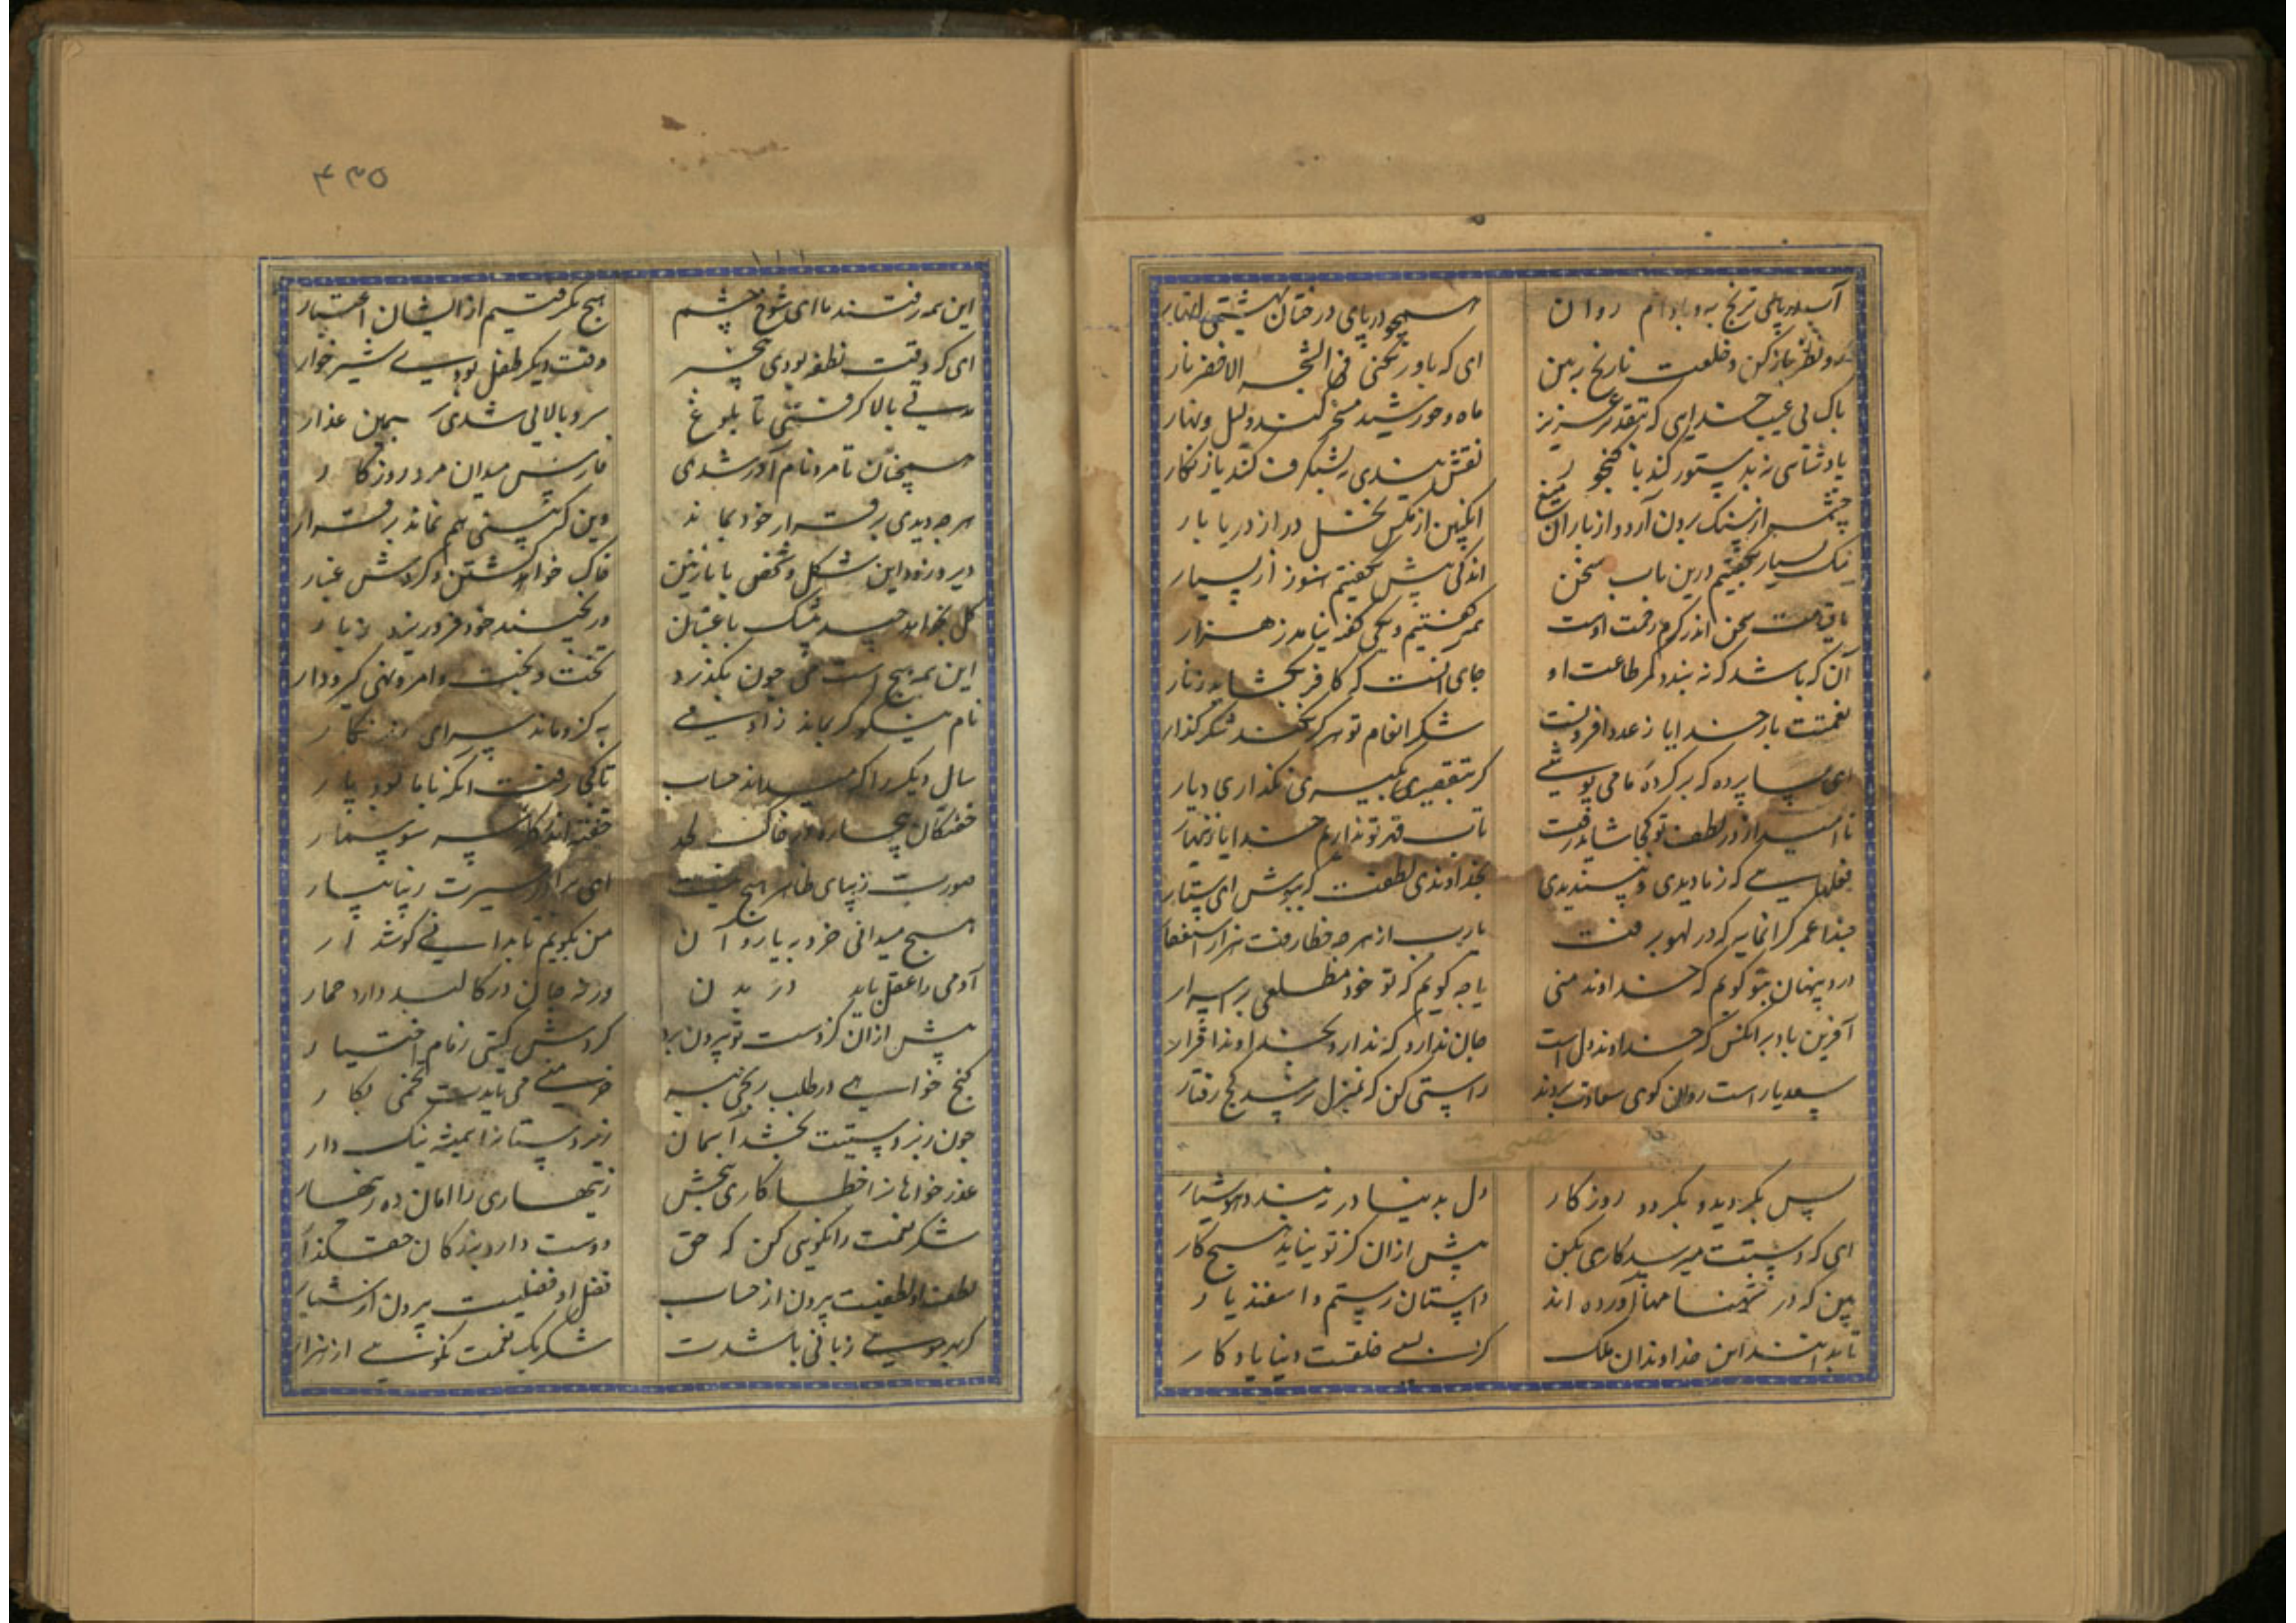 آب در پای ترنج و به و بادام روان همچو در پای درختان بهشتی انهار
رو نظر باز کن و خلعت نارنج ببین ای که باور نکنی فی الشجر الاخضر نار
پاک بی عیب خدایی که بتقدیر عزیز ماه و خورشید مسخر کند و لیل و نهار
پادشاهی نه بدستور کند یا گنجور نقش بندی نه بشنگرف کند یا زنگار
چشمه از سنگ برون آرد و از باران میغ انگبین از مگس نحل و در از دریا بار
نیک بسیار بگفتیم درین باب سخن اندکی بیش نگفتیم هنوز از بسیار
تا قیامت سخن اندر کرم رحمت اوست همه گفتیم و یکی گفته نیامد ز هزار
آن که باشد که نه بندد کمر طاعت او جای آنست که کافر بگشاید زنار
نعمتت بار خدایا ز عدد افزونست شکر انعام تو هرگز نکند شکر گذار
این همه پرده که بر کرده ما می پوشی گر بتقصیر بگیری نگذاری دیار
ناامید از در لطف تو کجا شاید رفت تاب قهر تو نداریم خدایا زنهار
فعلهایی که ز ما دیدی و نپسندیدی بخداوندی لطفت که بپوش ای ستار
حبذا عمر گرانمایه که در لهو برفت یارب از هر چه خطا رفت هزار استغفار
درد پنهان بتو گویم که خداوند منی یا چه گویم که تو خود مطلعی بر اسرار
آفرین باد بر انکس که خداوند دل است جان ندارد که ندارد بخداوند اقرار
سعدیا راست روان گوی سعادت بردند راستی کن که بمنزل نرسد کج رفتار
نصیحت
بس بگردید و بگردد روزگار دل بدنیا در نبندد هوشیار
ای که دستت میرسد کاری بکن پیش ازان کز تو نیاید هیچ کار
این که در شهنامها آورده اند داستان رستم و اسفندیار
تا بدانند این خداوندان ملک کز بسی خلقت دنیا یادگار
۴۳۵
این همه رفتند ما ای شوخ چشم هیچ نگرفتیم از ایشان اعتبار
ای که وقت نطفه بودی بیخبر وقت دیگر طفل بودی شیرخوار
مدتی بالا گرفتی تا بلوغ سرو بالایی شدی سیمین عذار
همچنان تا مرد نام آور شدی فارس میدان مرد روزگار
هر چه دیدی بر قرار خود نماند وین که بینی هم نماند برقرار
دیر و زود این شکل و شخص نازنین خاک خواهد گشتن و گردش غبار
گل بخواهد چید بیشک باغبان ور نچیند خود فرو ریزد ز بار
این همه هیچ است می چون بگذرد تخت و بخت و امر و نهی و گیر و دار
نام نیکو گر بماند ز آدمی به کزو ماند سرای زرنگار
سال دیگر را که میداند حساب تا کجا رفت انکه با ما بود پار
خفتگان بیچاره در خاک لحد خفته اندر کله سر سوسمار
صورت زیبای ظاهر هیچ نیست ای برادر سیرت زیبا بیار
هیچ میدانی خرد به یا روان من بگویم تا بدانی گوش دار
آدمی را عقل باید در بدن ورنه جان در کالبد دارد حمار
پیش ازان کز دست تو بیرون برد گردش گیتی زمام اختیار
گنج خواهی در طلب رنجی ببر خرمنی می بایدت تخمی بکار
چون زبردستیت بخشد آسمان زیردستانرا همیشه نیک دار
عذر خواهانرا خطاکاری ببخش زینهاری را امان ده زینهار
شکر نعمت را نکویی کن که حق دوست دارد بندگان حق گذار
لطف او لطفیست بیرون از حساب فضل او فضلیست بیرون از شمار
گر بهر مویی زبانی باشدت شکر یک نعمت نگویی از هزار